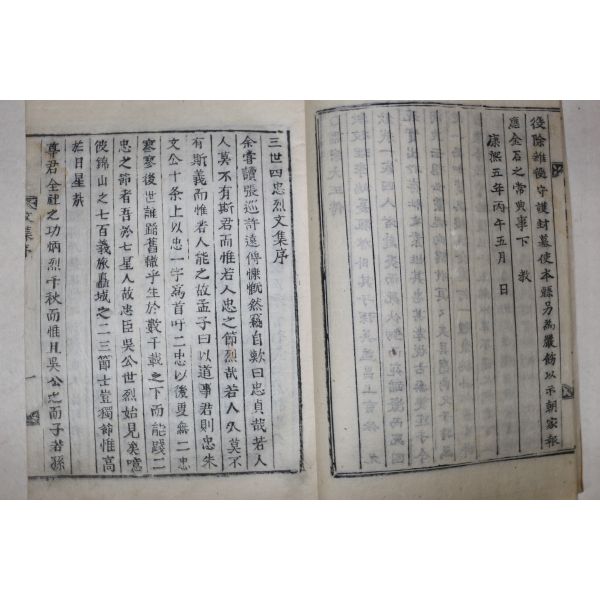 役除雜役守護封墓使本縣另爲嚴飭以示朝家報
應金石之常典事下 敎
康熙五年丙午五月 日
三世四忠烈文集序
余嘗讀張巡許遠傳慷慨然竊自歎曰忠貞哉若人
人莫不有斯君而惟若人忠之節烈哉若人夂莫不
有斯義而惟若人能之故孟子曰以道事君則忠朱
文公十条上以忠一字爲首吁二忠以後更無二忠
寥寥後世誰踏舊轍乎生於數千載之下而能踐二
忠之節者吾於七星人故忠臣吳公世烈始見矣噫
彼錦山之七百義旅矗城之二三節士豈獨節惟高
於日星哉
尊君全社之功炳烈千秋而惟且吳公之而子若孫
文集序
一